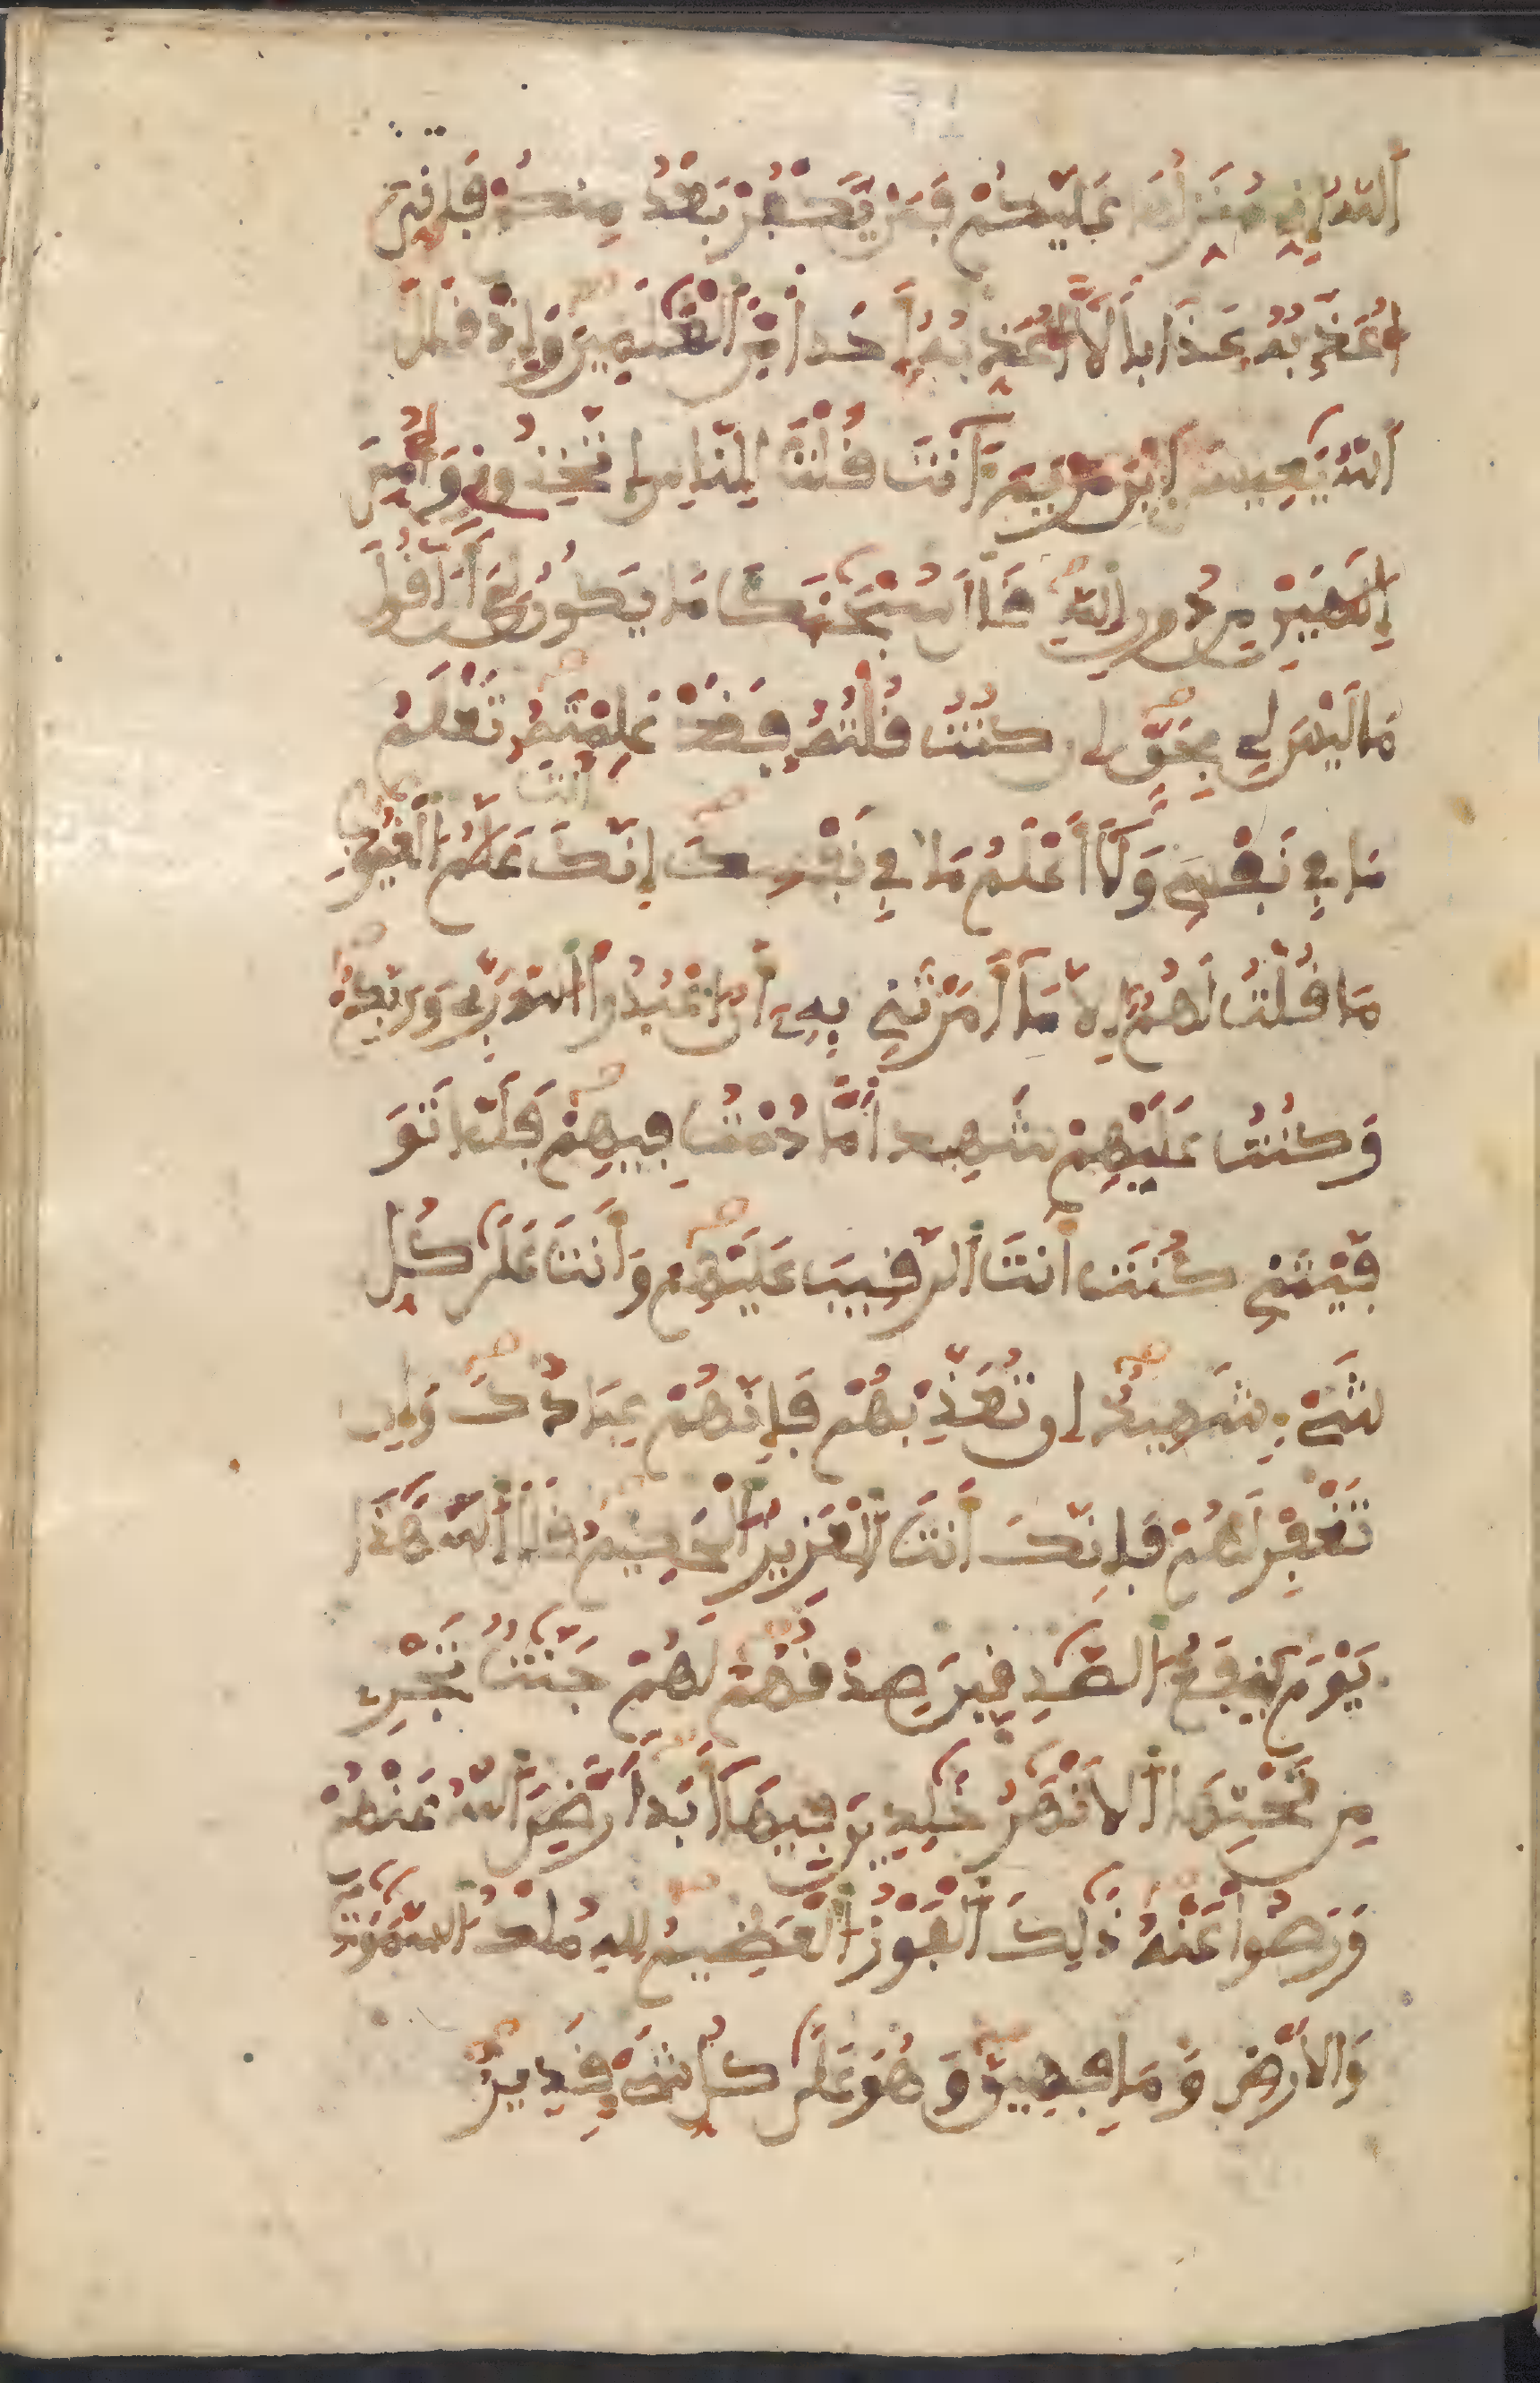 اَللَّهُ إِنِّي مُنَزِّلُهَا عَلَيْكُمْ فَمَنْ يَّكْفُرْ بَعْدُ مِنكُمْ فَإِنِّيَ
أُعَذِّبُهُ عَذَاباً لَّا أُعَذِّبُهُ أَحَداً مِّنَ اَلْعَٰلَمِينَ وَإِذْ قَالَ
اَللَّهُ يَٰعِيسَى اَبْنَ مَرْيَمَ ءَآنتَ قُلْتَ لِلنَّاسِ اِتَّخِذُونِي وَأُمِّيَ
إِلَٰهَيْنِ مِن دُونِ اِللَّهِ قَالَ سُبْحَٰنَكَ مَا يَكُونُ لِيَ أَنَ اَقُولَ
مَا لَيْسَ لِي بِحَقٍّ إِن كُنتُ قُلْتُهُ فَقَدْ عَلِمْتَهُ تَعْلَمُ
مَا فِي نَفْسِي وَلَا أَعْلَمُ مَا فِي نَفْسِكَ إِنَّكَ أَنتَ عَلَّٰمُ اُلْغُيُوبِ
مَا قُلْتُ لَهُمُ إِلَّا مَا أَمَرْتَنِي بِهِ أَنُ اُعْبُدُوا اُللَّهَ رَبِّي وَرَبَّكُمْ
وَكُنتُ عَلَيْهِمْ شَهِيداً مَّا دُمْتُ فِيهِمْ فَلَمَّا تَوَ
فَّيْتَنِي كُنتَ أَنتَ اَلرَّقِيبَ عَلَيْهِمْ وَأَنتَ عَلَىٰ كُلِّ
شَيْءٍ شَهِيدٌ إِن تُعَذِّبْهُمْ فَإِنَّهُمْ عِبَادُكَ وَإِن
تَغْفِرْ لَهُمْ فَإِنَّكَ أَنتَ اَلْعَزِيزُ اُلْحَكِيمُ قَالَ اَللَّهُ هَٰذَا
يَوْمَ يَنفَعُ اُلصَّٰدِقِينَ صِدْقُهُمْ لَهُمْ جَنَّٰتٌ تَجْرِي
مِن تَحْتِهَا اَلَانْهَٰرُ خَٰلِدِينَ فِيهَا أَبَداً رَّضِيَ اَللَّهُ عَنْهُمْ
وَرَضُوا عَنْهُ ذَٰلِكَ اَلْفَوْزُ اُلْعَظِيمُ لِلهِ مُلْكُ اُلسَّمَٰوَٰتِ
وَالَارْضِ وَمَا فِيهِنَّ وَهُوَ عَلَىٰ كُلِّ شَيْءٍ قَدِيرٌ